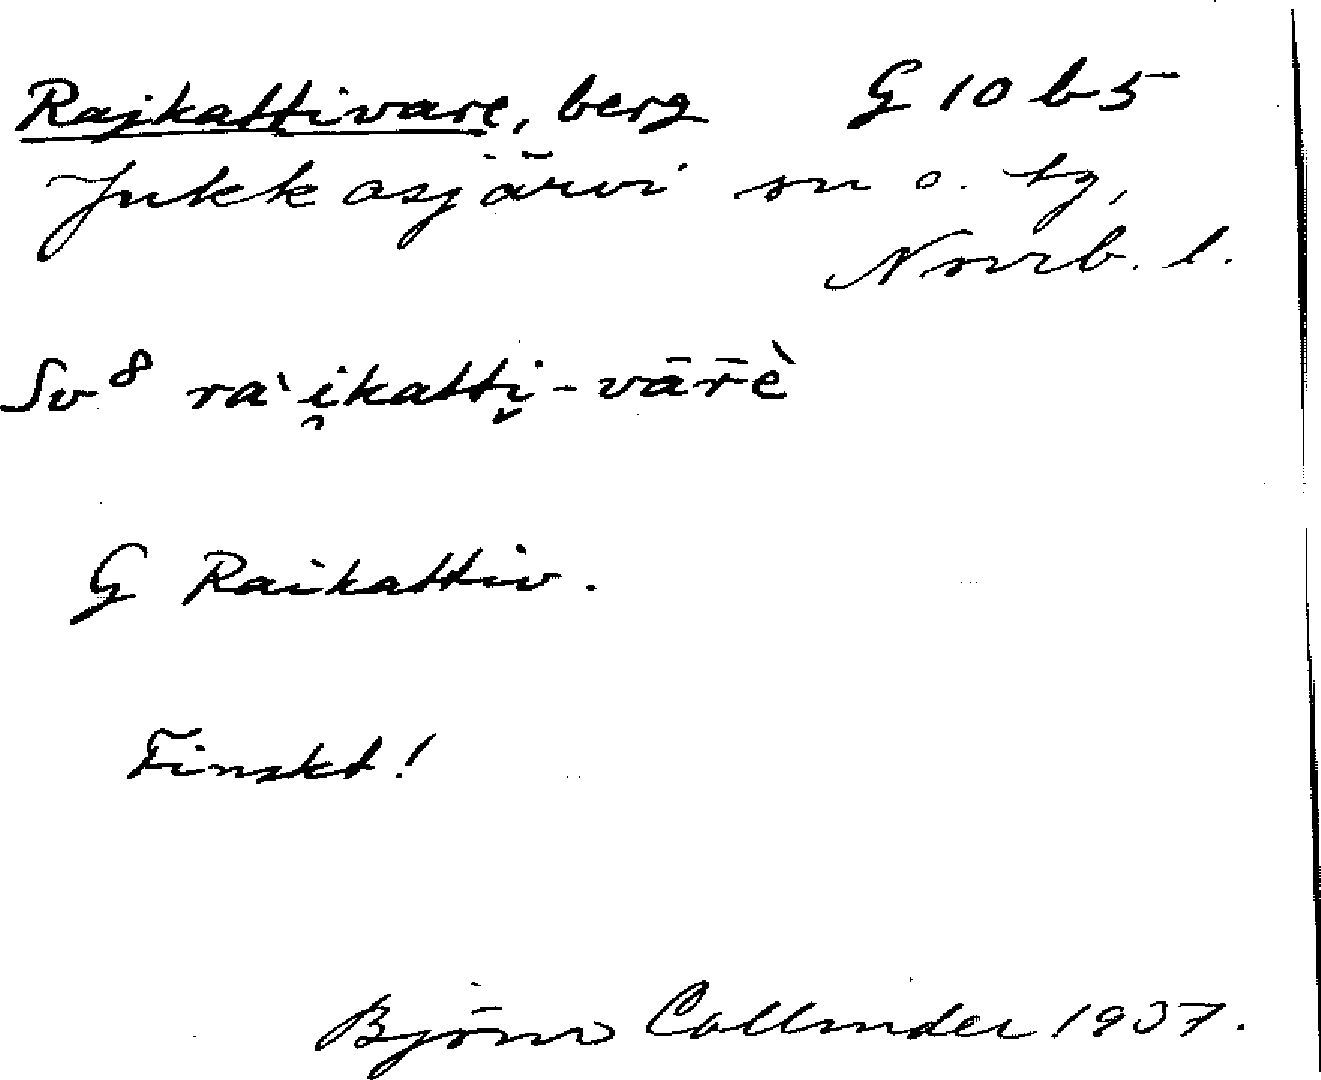 Rajkattivare, berg G 10 b 5
Jukkasjärvi sn o. tg,
Norrb. l.
Sv 8 ra`i̯katti̮-vār̄è
G Raikattiv.
Finskt!
Björn Collinder 1937.